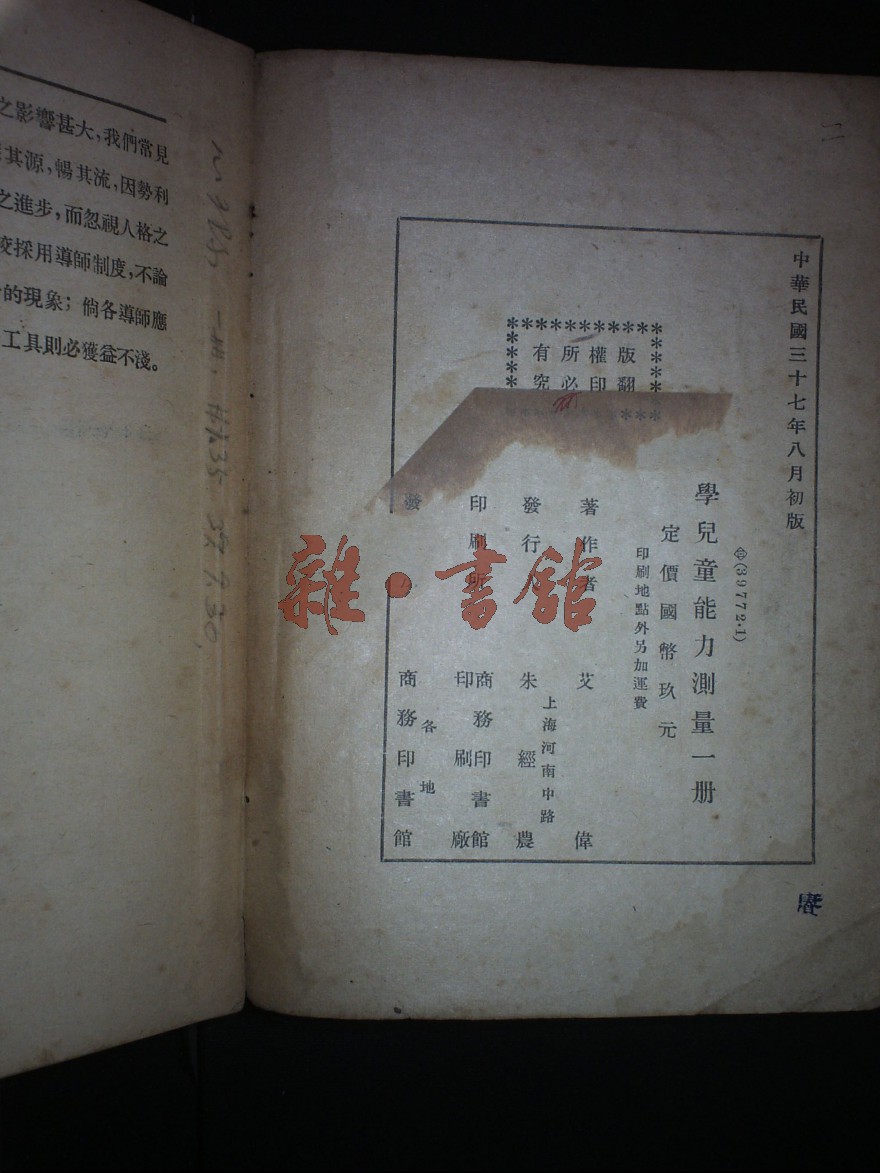 之影響甚大，我們常見
其源，暢其流，因勢利
之進步，而忽視人格之
校採用導師制度，不論
的現象；倘各導師應
工具則必獲益不淺。
二
中華民國三十七年八月初版
(39772·1)
學兒童能力測量一册
定價國幣玖元
印刷地點外另加運費
版權所有
翻印必究
著作者 艾偉
上海河南中路
發行 朱經農
印刷所 商務印書館
印刷廠
各地
發 商務印書館
雜·書館